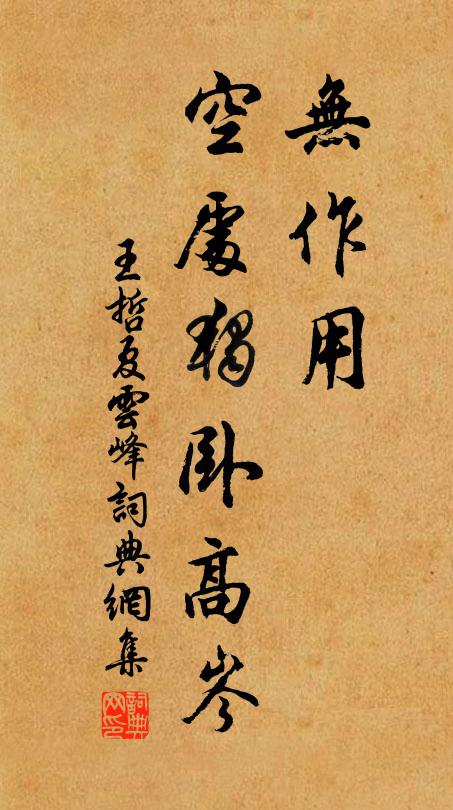 無作用
空處獨臥高岑
王哲夏雲峰詞典網集
詞典
网印